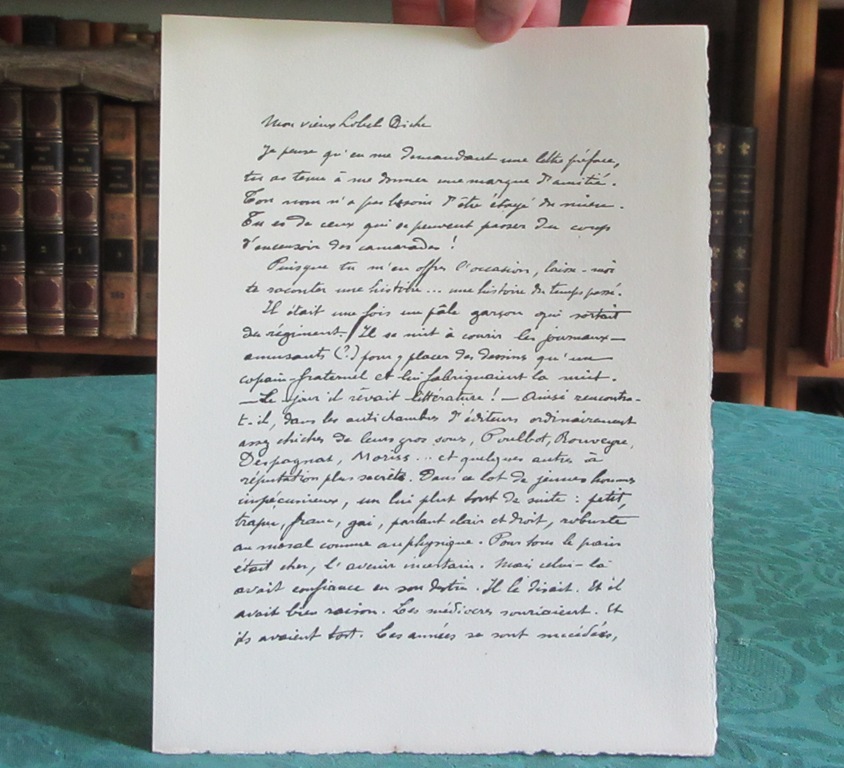 Mon vieux Lobel-Riche
Je pense qu'en me demandant une lettre préface,
tu as tenu à me donner une marque d'amitié.
Ton nom n'a pas besoin d'être étayé du mien.
Tu es de ceux qui se peuvent passer du coup
d'encensoir des camarades !
Puisque tu m'en offres l'occasion, laisse-moi
te raconter une histoire... une histoire du temps passé.
Il était une fois un pâle garçon qui sortait
du régiment. Il se mit à courir les journaux —
amusants (?) pour y placer des dessins qu'un
copain fraternel et lui fabriquaient la nuit.
— Le jour il rêvait littérature ! — Ainsi rencontra-
t-il, dans les antichambres d'éditeurs ordinairement
assez chiches de leurs gros sous, Poulbot, Rouveyre,
Despagnat, Moriss... et quelques autres à
réputation plus secrète. Dans ce lot de jeunes hommes
impécunieux, un lui plut tout de suite : petit,
trapu, franc, gai, parlant clair et droit, robuste
au moral comme au physique. Pour tous le pain
était cher, l'avenir incertain. Mais celui-là
avait confiance en son destin. Il le disait. Et il
avait bien raison. Les médiocres souriaient. Et
ils avaient tort. Les années se sont succédées,